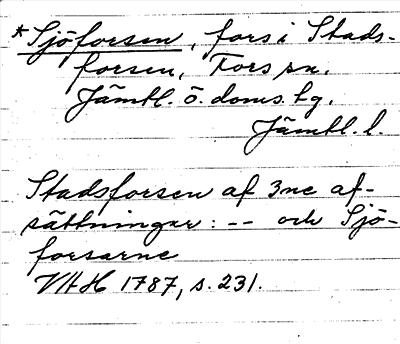 *Sjöforsen, fors i Stads-
forsen, Fors sn.
Jämtl. ö. doms. hg.
Jämtl. l.
Stadsforsen af 3ne af-
sättningar: -- och Sjö-
forsarne
VHH 1787, s. 231.